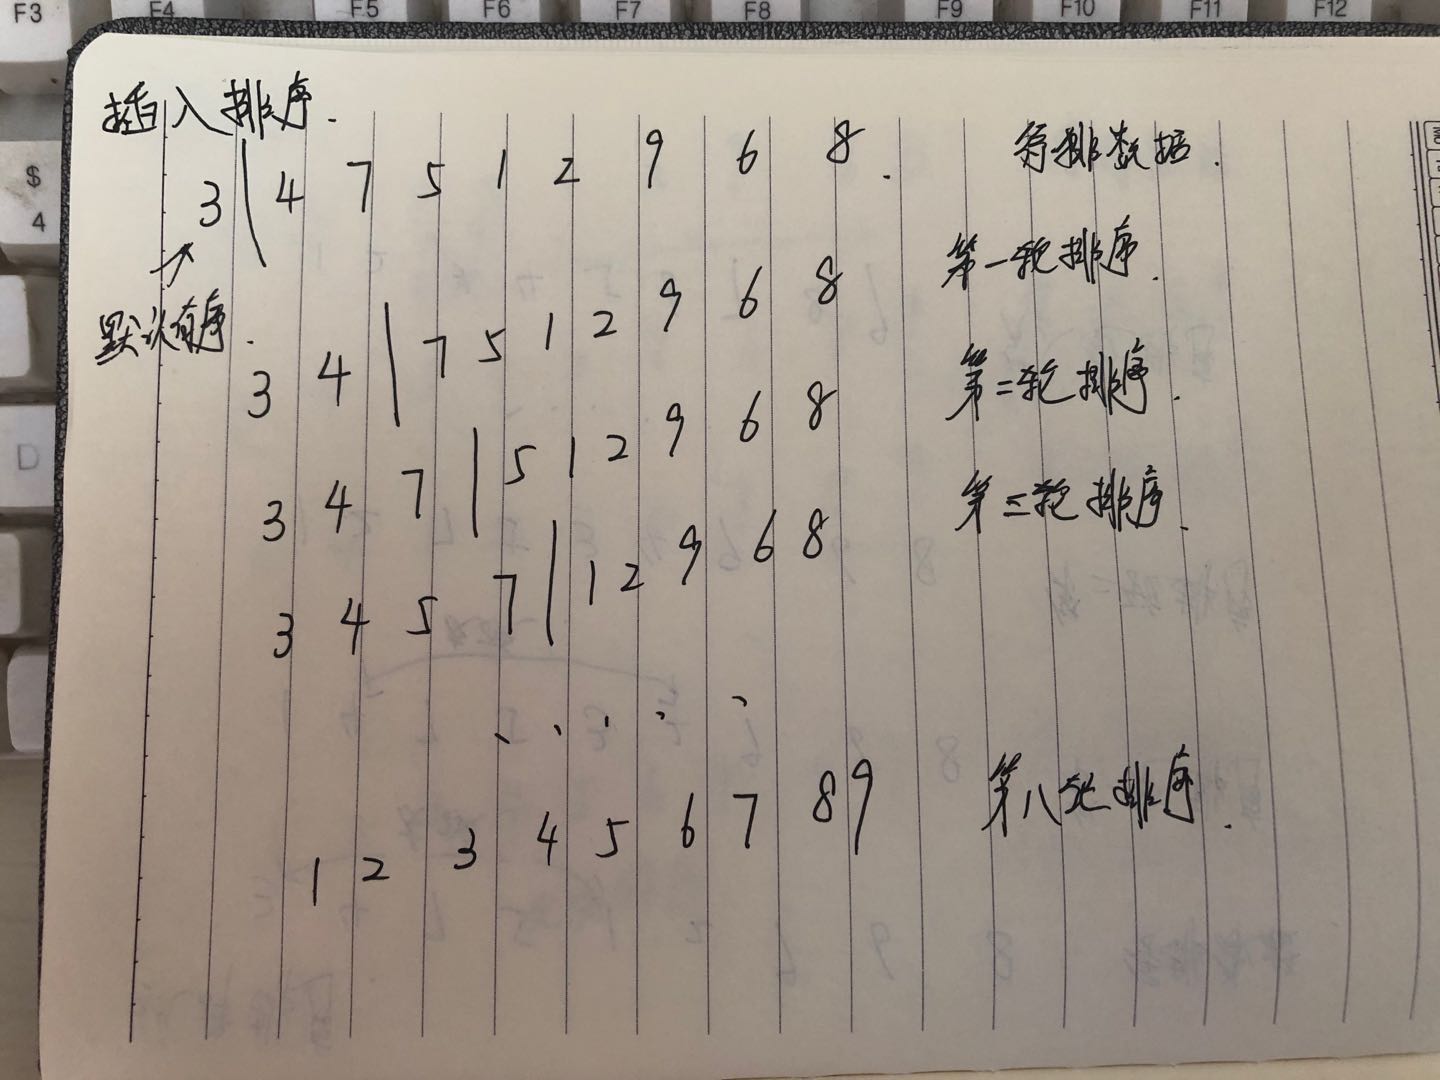 F3 F4 F5 F6 F7 F8 F9 F10 F11 F12
$
4
D
插入排序.
3 | 4 7 5 1 2 9 6 8 . 待排数据.
默认有序.
3 4 | 7 5 1 2 9 6 8 第一轮排序.
3 4 7 | 5 1 2 9 6 8 第二轮排序.
3 4 5 7 | 1 2 9 6 8 第三轮排序.
. . . . .
1 2 3 4 5 6 7 8 9 第八轮排序.